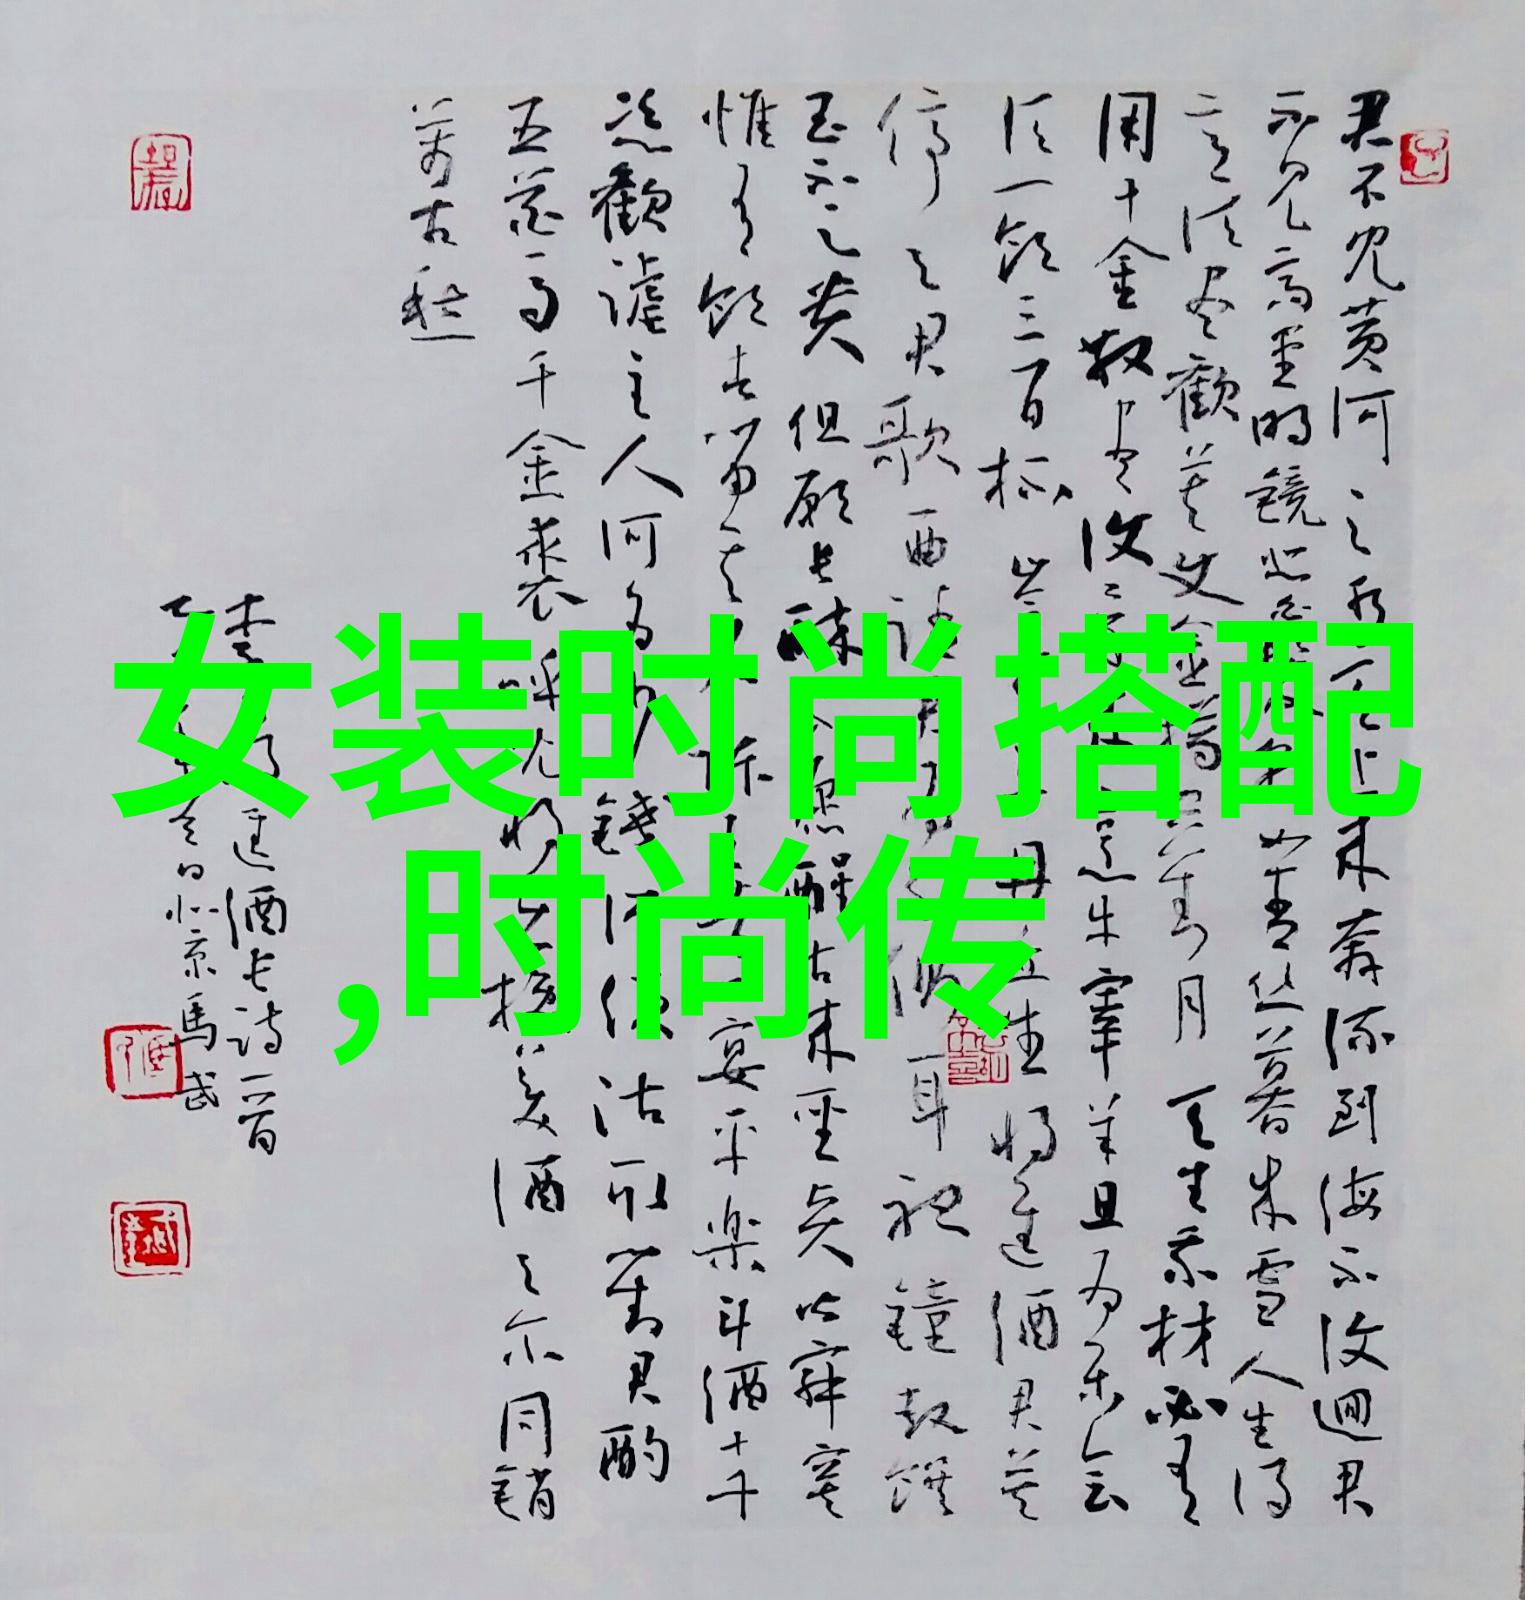 君不見黄河之水天上来奔流到海不復迴君
不見高堂明鏡悲白髮朝如青丝暮成雪人生得
意须尽歡莫使金樽空对月天生我材必有
用千金散尽復还来烹牛宰羊且为乐会
须一飲三百杯岑夫子丹丘生将進酒君莫
停与君歌一曲請君为我侧耳聴鐘鼓饌
玉不足贵但願长醉不愿醒古来聖贤皆寂寞
惟有飲者留其名陈王昔时宴平楽斗酒十千
恣歡謔主人何为少錢径须沽取对君酌
五花马千金裘呼儿将出换美酒与尔同銷
萬古愁
李白将進酒长诗一首
冬日北京馬武
女装时尚搭配
,时尚传